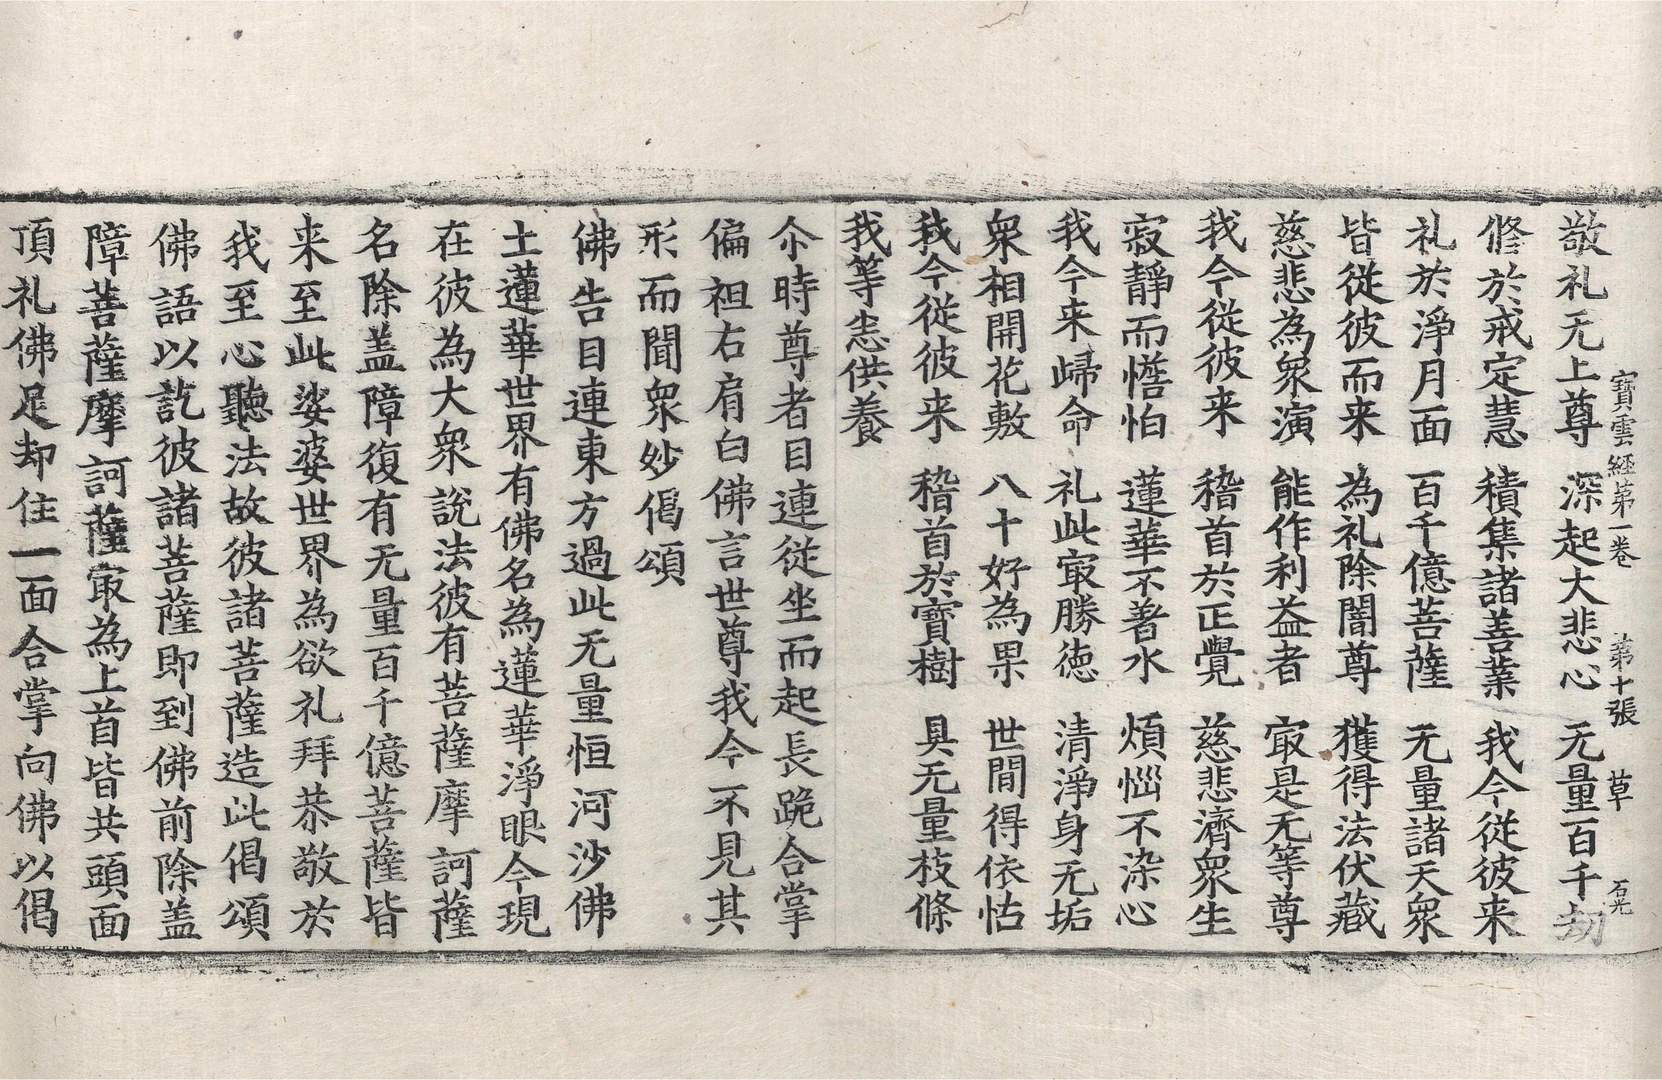 寶雲經第一卷　第十張　草　石光
敬礼无上尊　深起大悲心　无量百千劫
修於戒定慧　積集諸善業　我今從彼来
礼於淨月面　百千億菩薩　无量諸天衆
皆從彼而来　為礼除闇尊　獲得法伏藏
慈悲為衆演　能作利益者　㝡是无等尊
我今從彼来　稽首於正覺　慈悲濟衆生
寂靜而憺怕　蓮華不著水　煩惱不染心
我今来歸命　礼此㝡勝德　清淨身无垢
衆相開花敷　八十好為果　世間得依怙
我今從彼来　稽首於寶樹　具无量枝條
我等志供養
尒時尊者目連從坐而起長跪合掌
偏袒右肩白佛言世尊我今不見其
形而聞衆妙偈頌
佛告目連東方過此无量恒河沙佛
土蓮華世界有佛名為蓮華淨眼今現
在彼為大衆說法彼有菩薩摩訶薩
名除蓋障復有无量百千億菩薩皆
来至此娑婆世界為欲礼拜恭敬於
我至心聽法故彼諸菩薩造此偈頌
佛語以訖彼諸菩薩即到佛前除盖
障菩薩摩訶薩㝡為上首皆共頭面
頂礼佛足却住一面合掌向佛以偈